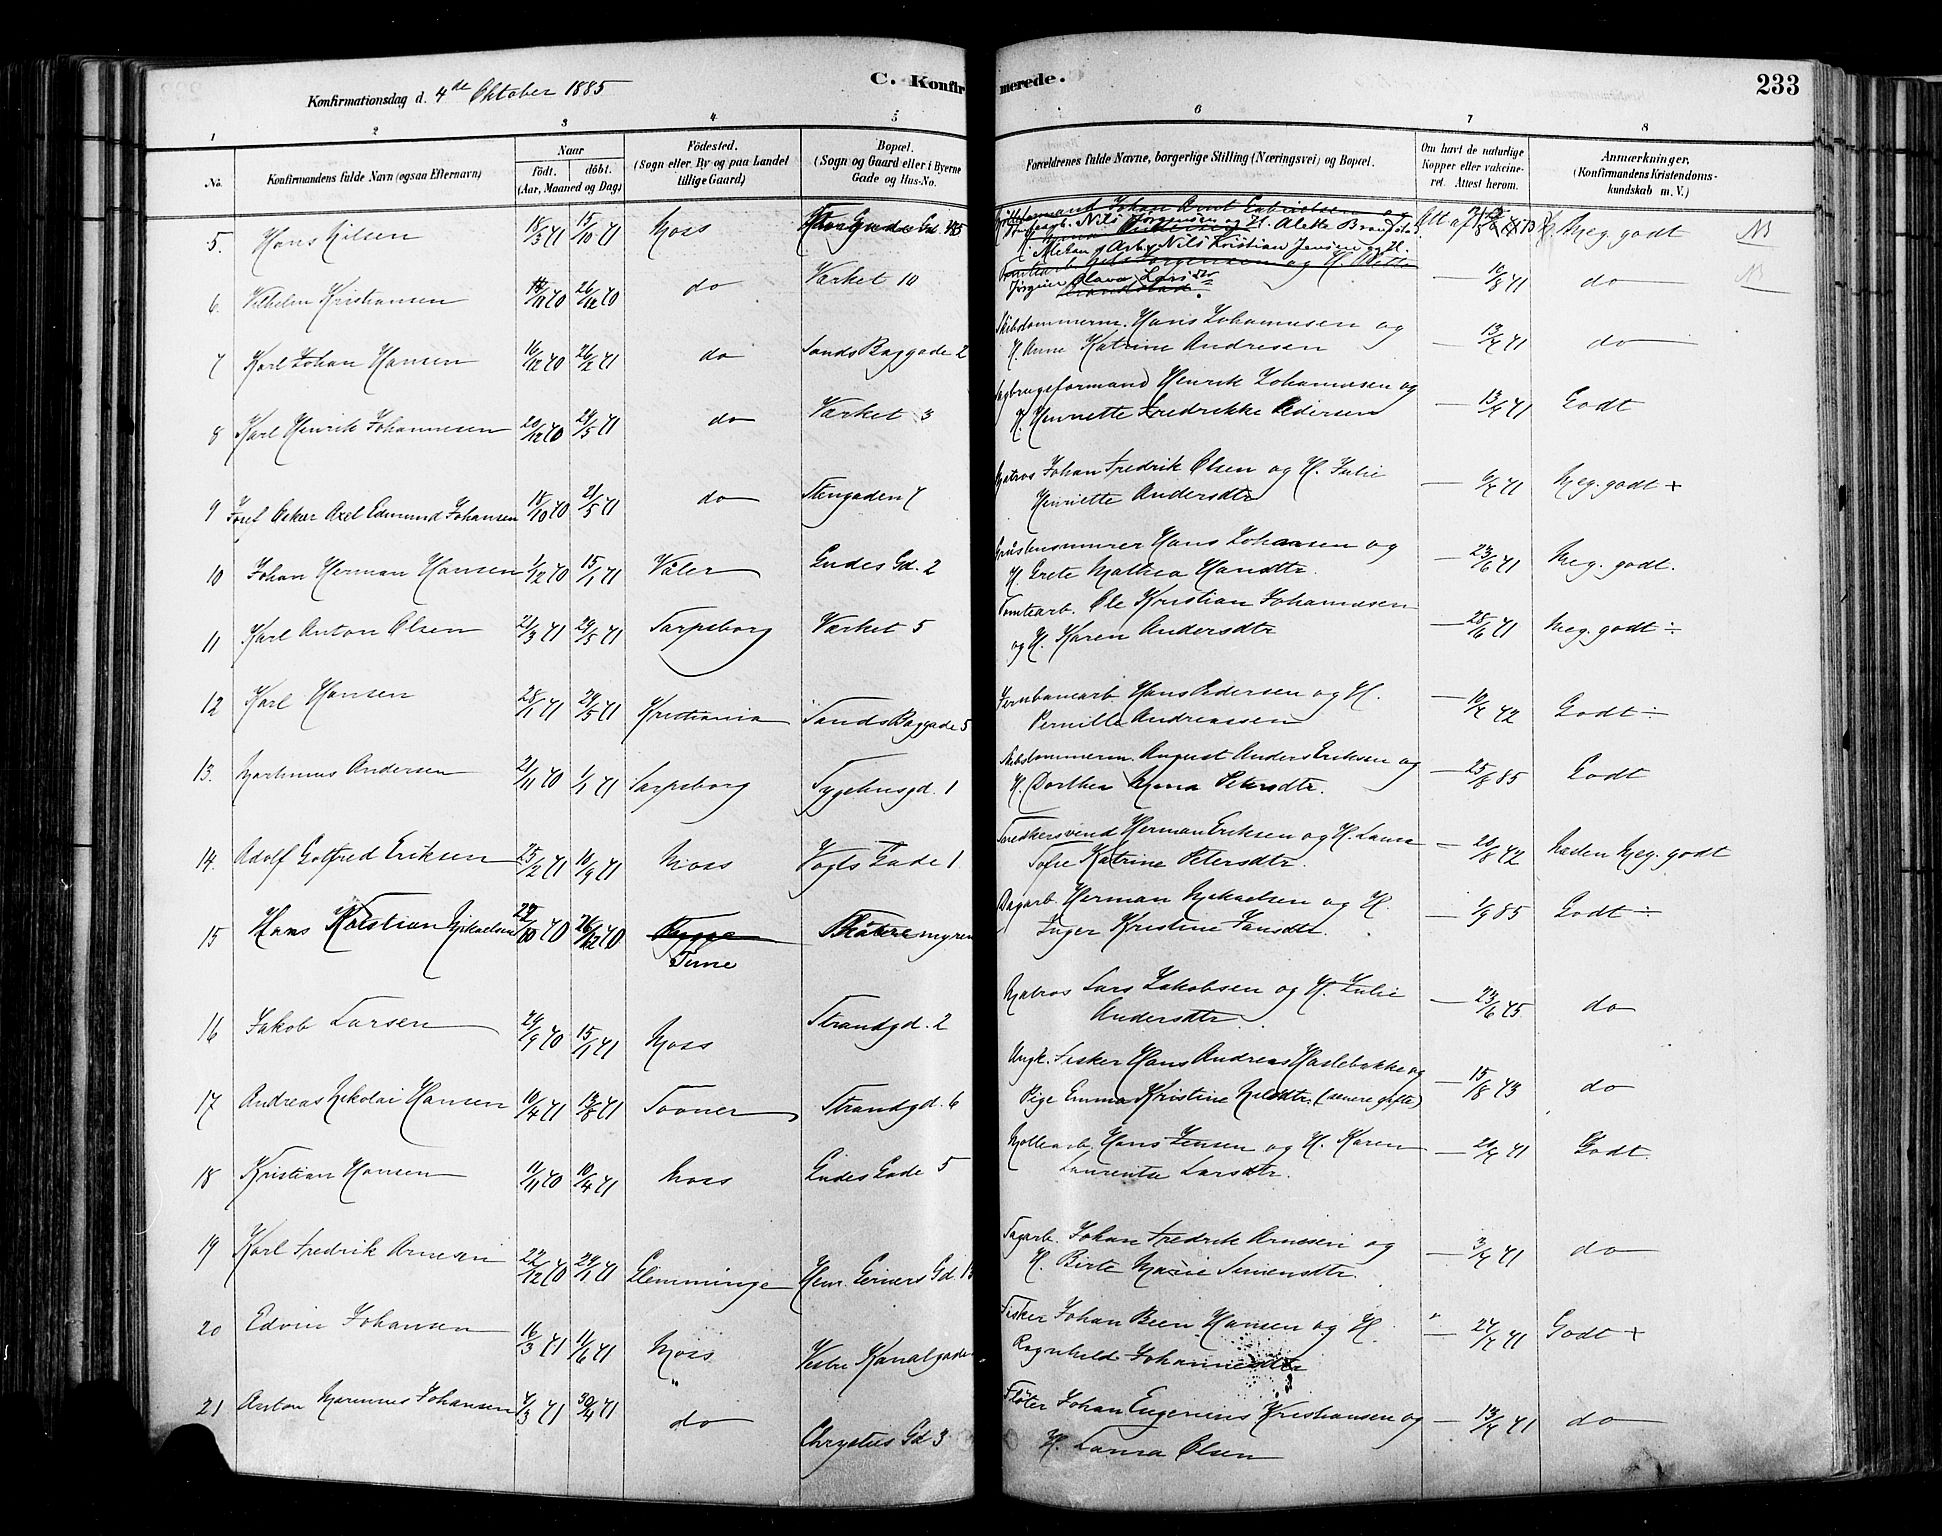 Konfirmationsdag d. 4de Oktober 1885
C. Konfirmerede.
233
1 2 3 4 5 6 7 8
No. Konfirmandens fulde Navn (ogsaa Efternavn) Naar födt. döbt. (Aar, Maaned og Dag) Födested. (Sogn eller By og paa Landet tillige Gaard) Bopæl. (Sogn og Gaard eller i Byerne Gade og Hus-No. Forældrenes fulde Navne, borgerlige Stilling (Næringsvei) og Bopæl. Om havt de naturlige Kopper eller vakcineret. Attest herom. Anmærkninger. (Konfirmandens Kristendomskundskab m. V.)
5. Hans Nilsen 18/3 71 15/10 71 Moss Nils Jørgensen og H. Alette Meg. godt NB
6. Vilhelm Kristiansen 70 26/12 70 do Værket 10 Arb. Nils Kristian Jensen og H. Jørgine Olava Larsdtr — 10/8 71 do NB
7 Karl Johan Hansen 16/12 70 26/2 71 do Sands Baggade 2 Skibstømmerm. Hans Johannesen og
H. Anne Katrine Andresen — 13/7 71 do
8 Karl Henrik Johannesen 20/12 70 29/5 71 do Værket 3 Sagbrugsformand Henrik Johannesen og
H. Henriette Fredrikke Pedersen — 13/7 71 Godt
9 Josef Oskar Axel Edmund Johansen 18/10 70 21/5 71 do Stengaden 7 Matros Johan Fredrik Olsen og H. Julie
Henriette Andersdtr — 71 Meg. godt +
10 Johan Herman Hansen 1/12 70 15/1 71 Våler Gudes Gd. 2 Hans Johansen og
H. Grete Mathea Hansdtr. — 23/6 71 Meg. godt.
11 Karl Anton Olsen 21/3 71 29/5 71 Sarpsborg Værket 5 Tomtearb. Ole Kristian Johannesen
og H. Karen Andersdtr — 28/6 71 Meg. godt ÷
12 Karl Hansen 28/1 71 29/5 71 Kristiania Sands Baggade 5 Jernbanearb. Hans Pedersen og H.
Pernille Andreassen — 10/7 72 Godt ÷
13. Martinus Andersen 21/11 70 1/1 71 Sarpsborg Tygehusgd. 1 Skibstømmerm. August Anders Eriksen og
H. Dorthea Maria Petersdtr. — 25/8 85 Godt
14. Adolf Gotfred Eriksen 25/2 71 10/9 71 Moss Vogts Gade 1 Snedkersvend Herman Eriksen og H. Laura
Sofie Katrine Petersdtr. — 20/8 72 Næsten Meg. godt
15 Hans Kristian Mikaelsen 70 26/12 70 Rygge Tune myren Dagarb. Herman Mikaelsen og H.
Inger Kristine Jansdtr. — 1/9 85 Godt ÷
16 Jakob Larsen 29/9 70 15/1 71 Moss Strandgd. 2 Matros Lars Jakobsen og H. Julie
Andersdtr. — 23/6 75 do
17 Andreas Nikolai Hansen 10/4 71 13/8 71 Soner Strandgd. 6 Ungk. Fisker Hans Andreas Haslebakke og
Pige Emma Kristine Nilsdtr. (senere gifte) — 15/8 73 do
18 Kristian Hansen 11/11 70 10/4 71 Moss Gudes Gade 5 Møllearb. Hans Jensen og H. Karen
Laurentse Larsdtr. — 71 Godt
19 Karl Fredrik Arnesen 22/12 70 29/1 71 Glemminge Henr. Gerners Gd. Sagarb. Johan Fredrik Arnesen og
H. Birte Marie Simensdtr. — 3/7 71 do
20 Edvin Johansen 16/3 71 11/6 71 Moss Vestre Kanalgade Fisker Johan Been Hansen og H.
Ragnhild Johannesdtr — 24/7 71 Godt +
21 Anton Marinus Johansen 7/3 71 30/4 71 do Chrysties Gd 3 Fløter Johan Eugenius Kristiansen og
H. Laura Olsen — 13/7 71 do